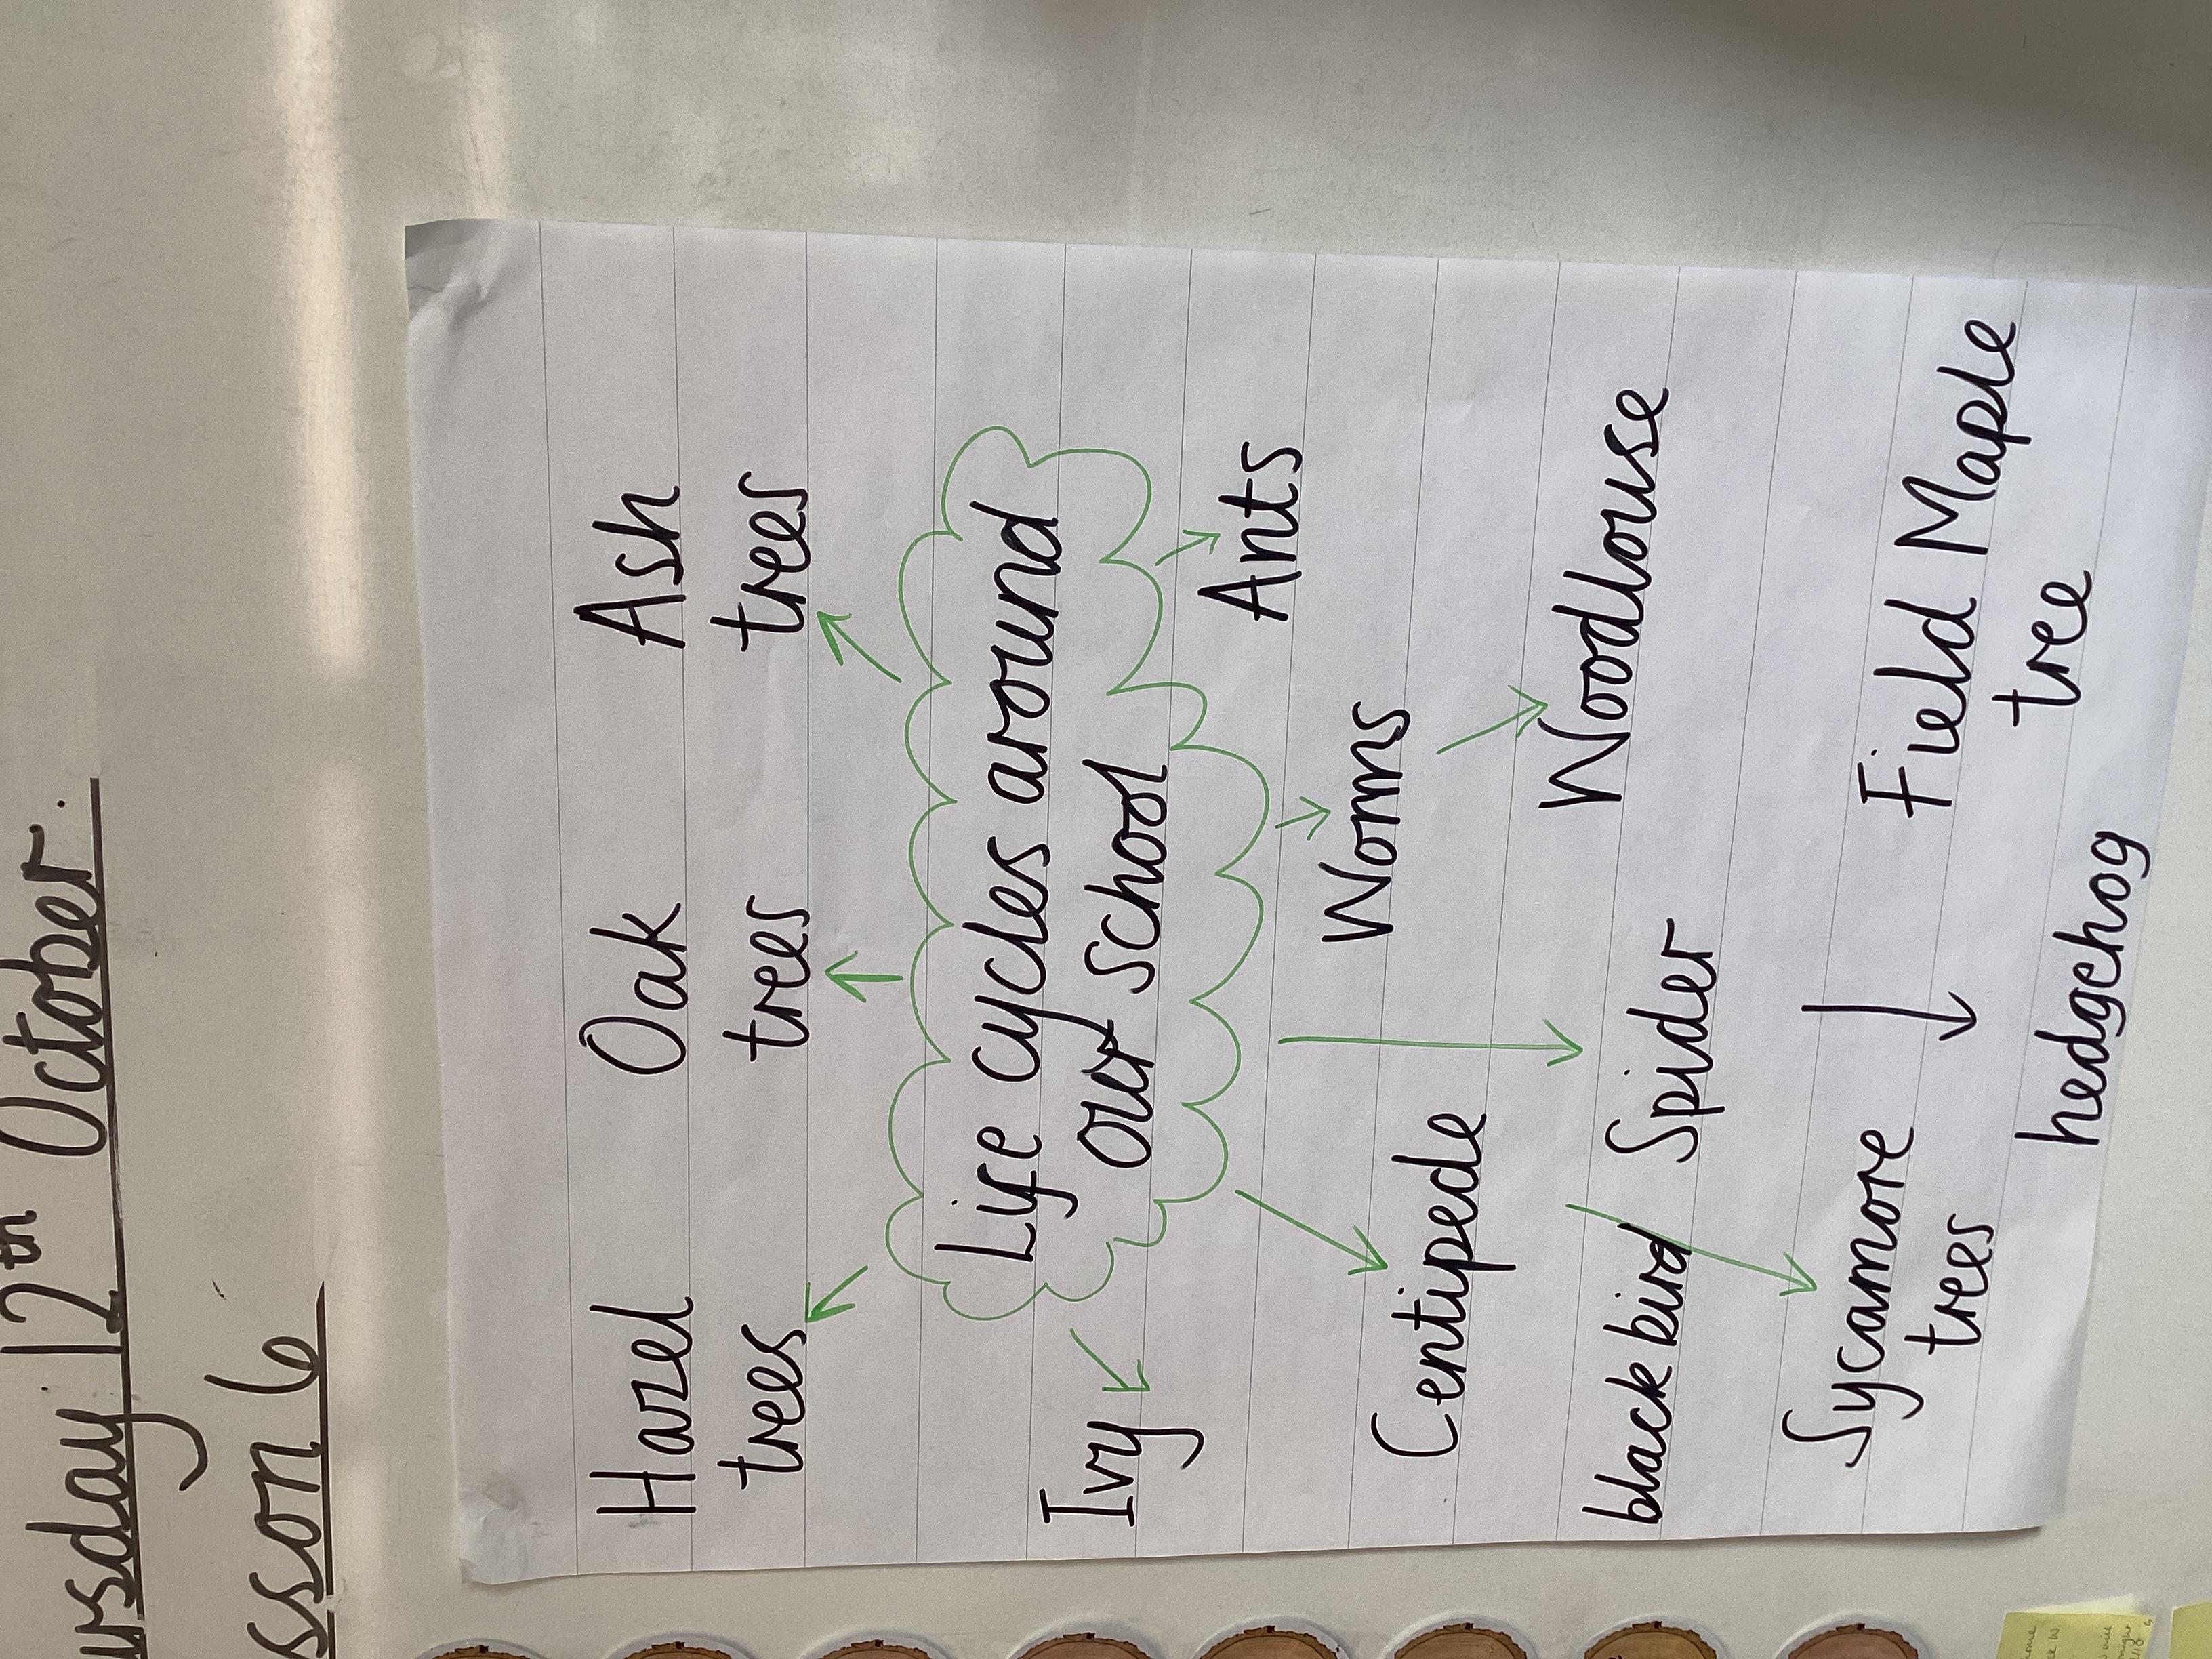 ursday 12th October.
sson 6
Hazel Oak Ash
trees trees trees
Life cycles around
our school
Ivy
Ants
Worms
Centipede
Woodlouse
Spider
black bird
Sycamore
trees
Field Maple
tree
hedgehog